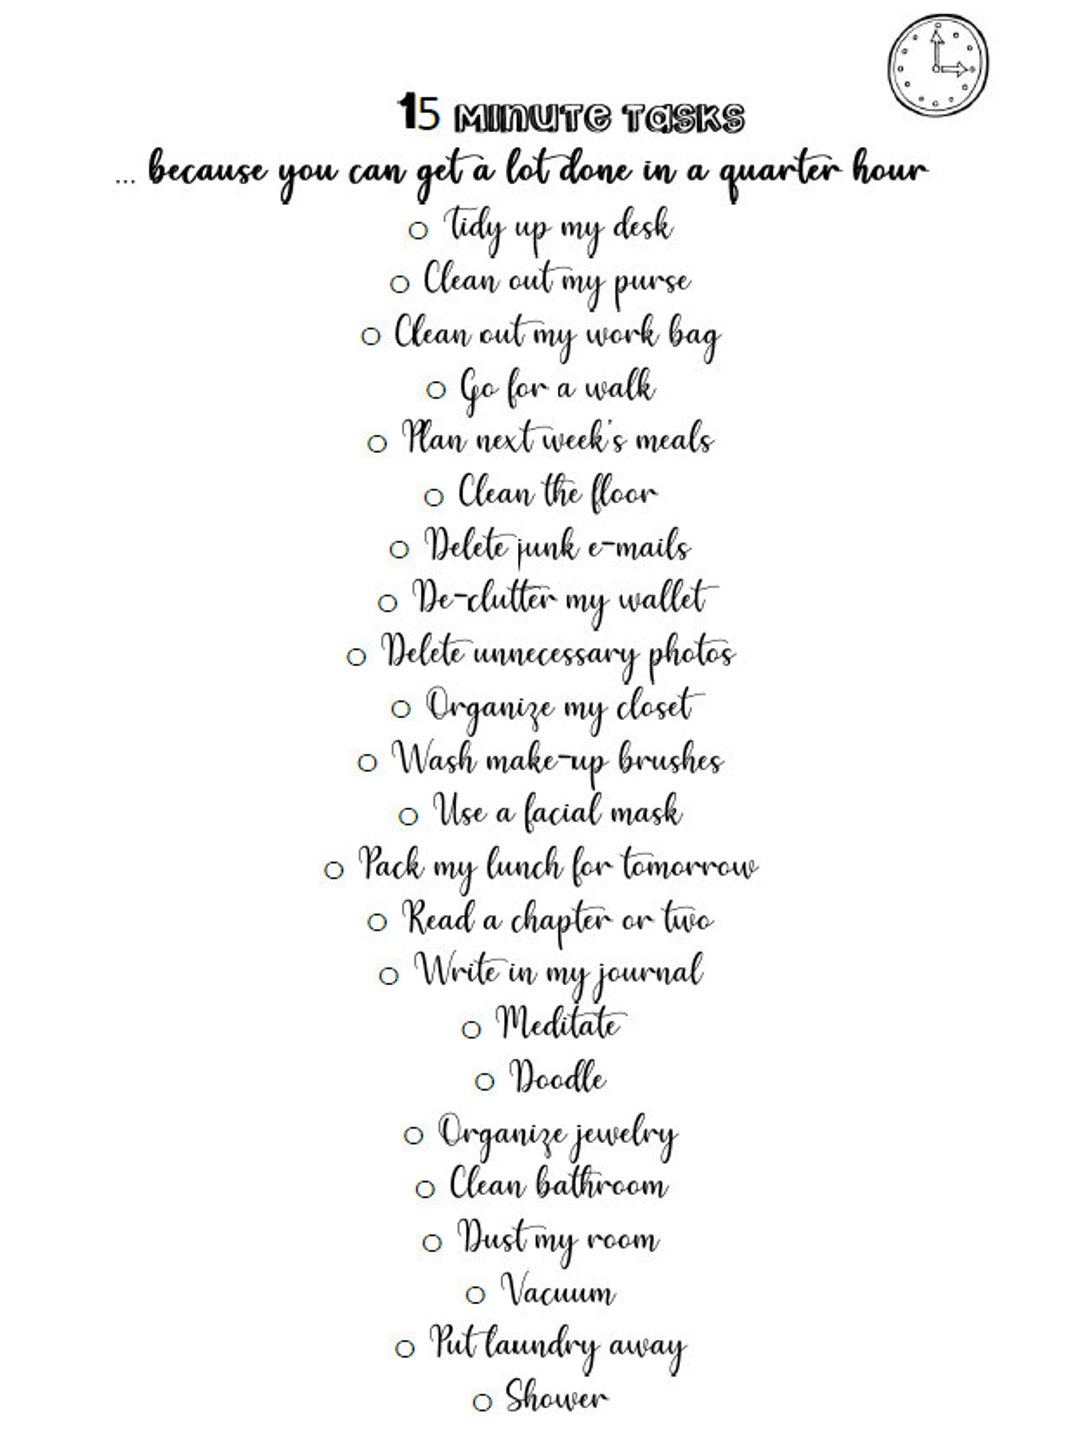 15 Minute Tasks
... because you can get a lot done in a quarter hour
○ Tidy up my desk
○ Clean out my purse
○ Clean out my work bag
○ Go for a walk
○ Plan next week's meals
○ Clean the floor
○ Delete junk e-mails
○ De-clutter my wallet
○ Delete unnecessary photos
○ Organize my closet
○ Wash make-up brushes
○ Use a facial mask
○ Pack my lunch for tomorrow
○ Read a chapter or two
○ Write in my journal
○ Meditate
○ Doodle
○ Organize jewelry
○ Clean bathroom
○ Dust my room
○ Vacuum
○ Put laundry away
○ Shower